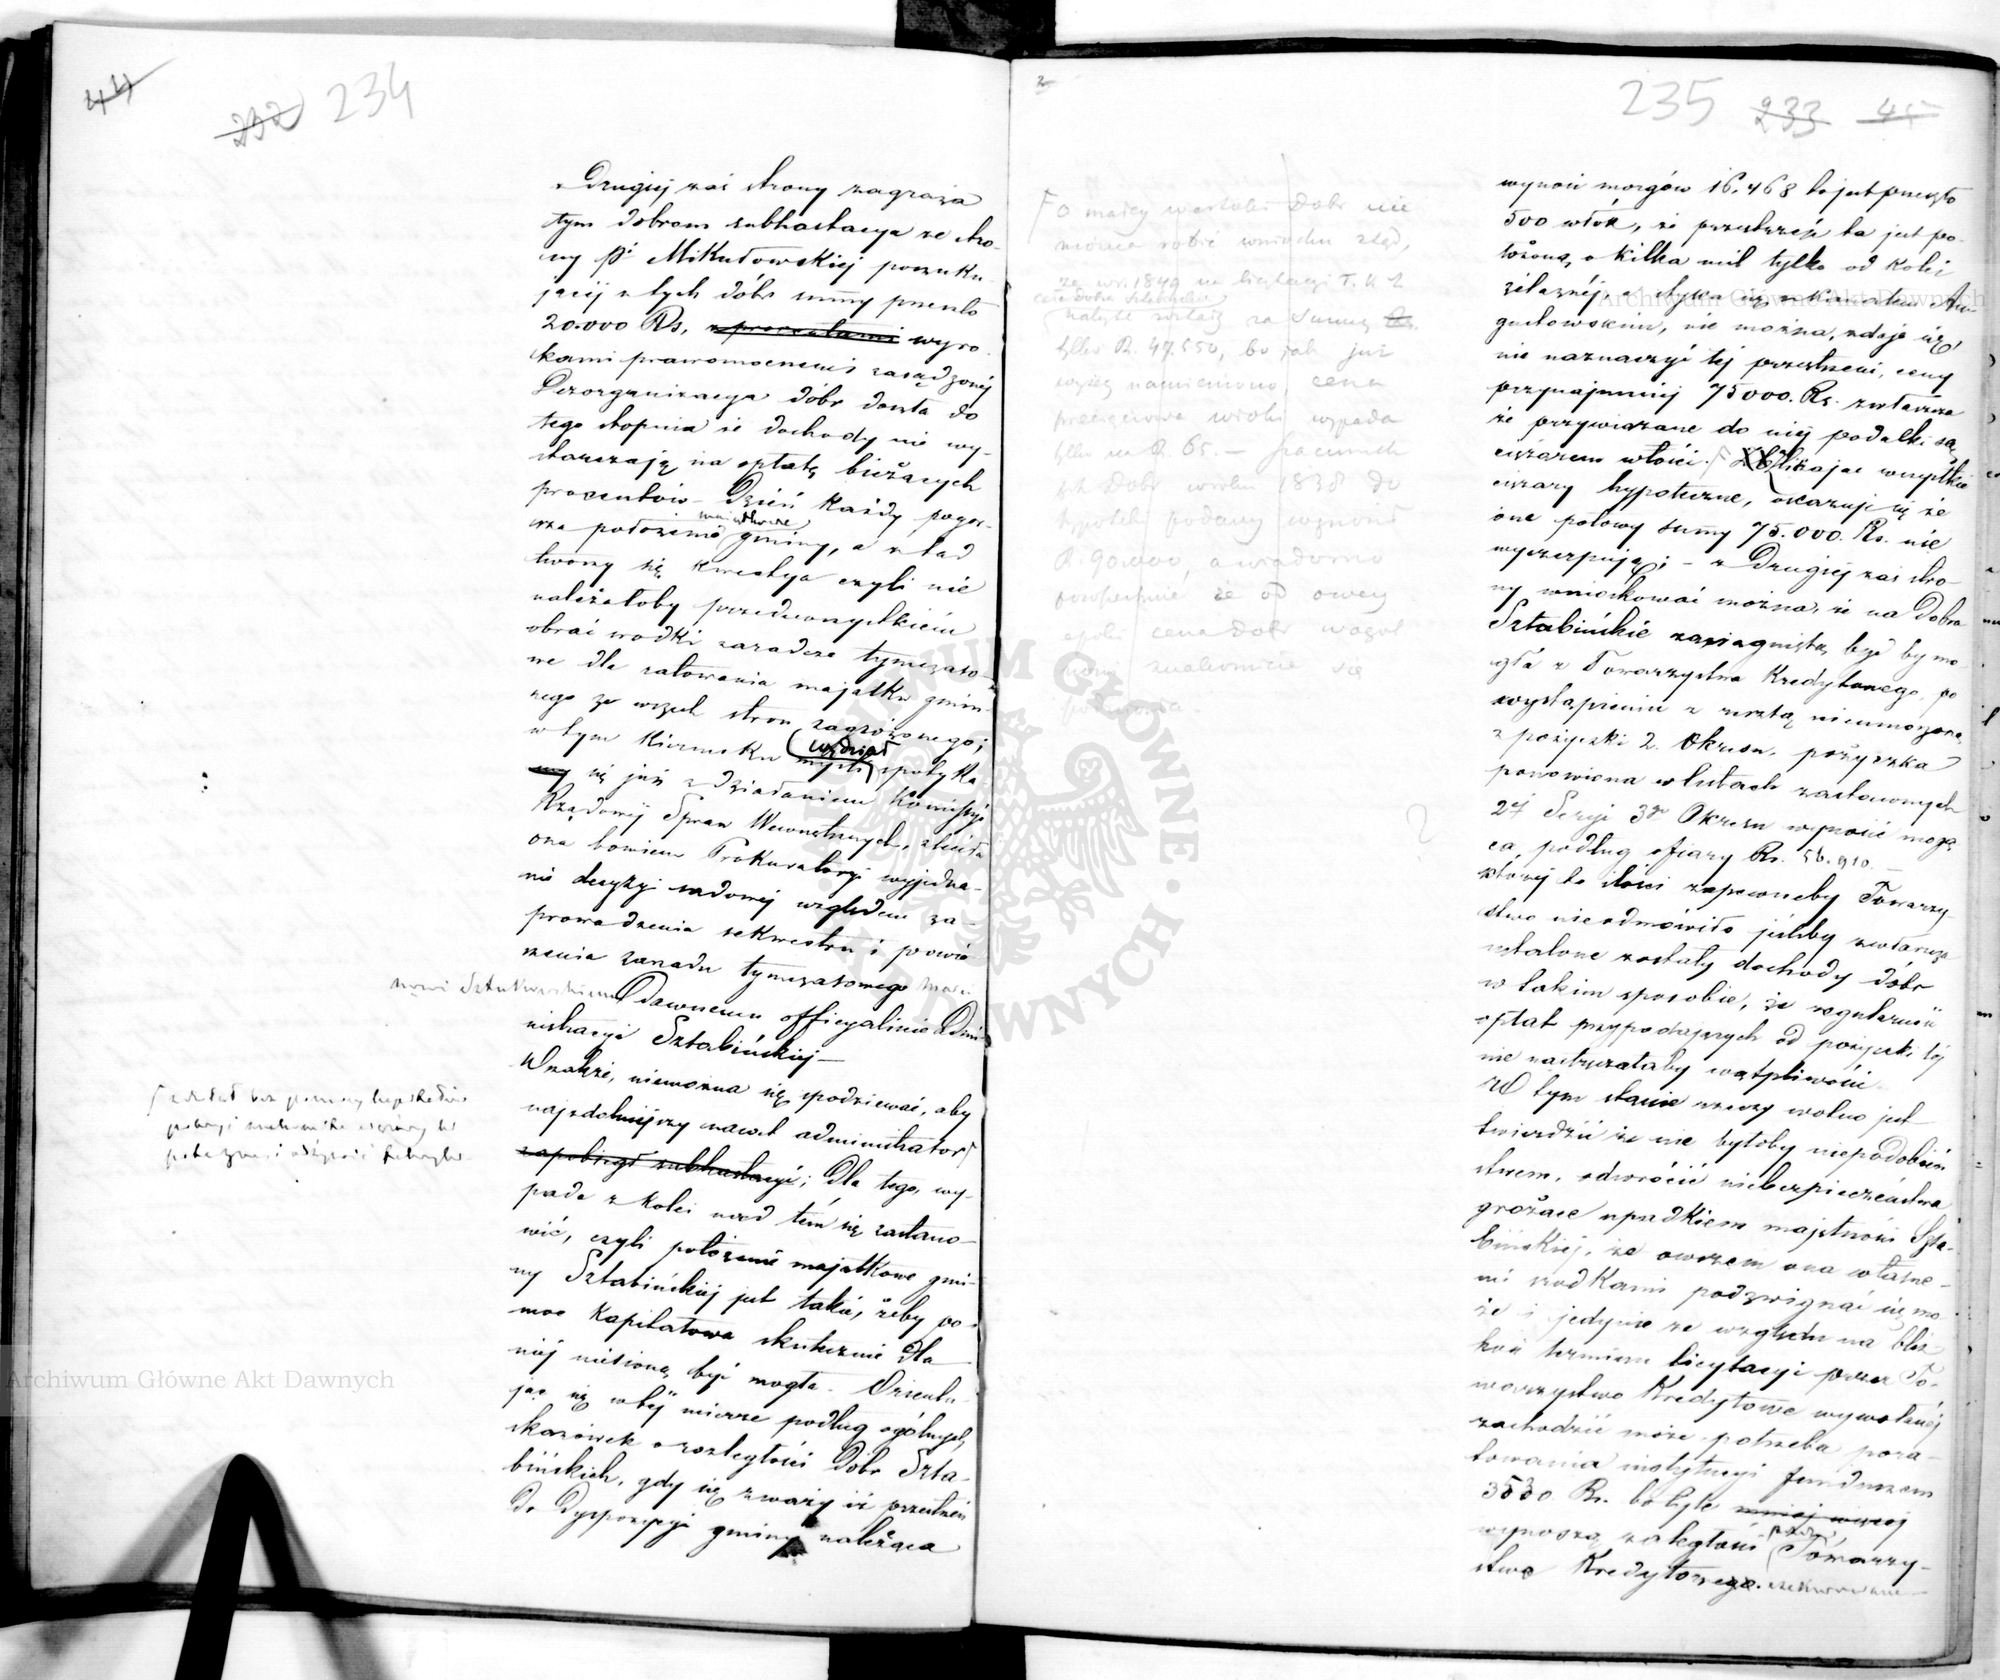 44
232 234
z Drugiej zaś strony zagraża
tym dobrom subhastacya ze stro-
ny Pi Mikułowskiej poszuku-
jącej z tych dóbr summy przeszło
20.000 Rs, z procentami wyro-
kami prawomocnemi zasądzonej
Dezorganizacya dóbr doszła do
tego stopnia że dochody nie wy-
starczają na opłatę bieżących
procentów – Dzień każdy pogar-
sza położenie majątkowe gminy, a ztąd
tworzy się kwestya czyli nie
należałoby przedewszystkiém
obrać środki zaradcze tymczaso-
we dla ratowania majątku gmin-
nego ze wszech stron zagrożonego;
w tym kierunku myśli wydział spotyka
się już z działaniem Kommissyi
Rządowej Spraw Wewnętrznych, zleciła
ona bowiem Prokuratoryi wyjedna-
nie decyzyi sądowej względem za-
prowadzenia sekwestru i powie-
rzenia zarządu tymczasowego
Dawnemu officyaliście Admi-
nistracyi Sztabińskiej –
Wszakże, niemożna się spodziewać, aby
najzdolniejszy nawet administrator
zapobiegł subhastacyi; Dla tego, wy-
pada z kolei nad tém się zastano-
wić, czyli położenie majątkowe gmi-
ny Sztabińskiej jest takie, żeby po-
moc kapitałowa skutecznie dla
niej niesioną być mogła. Orientu-
jąc się w tej mierze podług ogólnych
skazówek o rozległości Dóbr Szta-
bińskich, gdy się zważy iż przestrzeń
do dyspozycyi gminy należąca
2
235 233 45
F o małej wartości Dóbr nie
można robić wniosku ztąd,
że w r. 1849 na licytacyi T. K Z
cena dóbr Sztabińskich
za Summę
tylko R. 47.550, bo jak już
wyżej namieniono cena
przecięciowa włóki wypada
tylko na R. 65. – Szacunek
Dóbr w roku 1838 do
hypoteki podany wynosił
R. 90000, a wiadomo
powszechnie że od owej
epoki cena dóbr
znakomicie się
wynosi morgów 16.468 to jest przeszło
500 włók, że przestrzeń ta jest po-
łożoną o kilka mil tylko od Kolei
żelaznej, a styka się z Kanałem Au-
gustowskim, nie można, zdaje się,
nie naznaczyć tej przestrzeni, ceny
przynajmniej 75000. Rs. zwłaszcza
że przywiązane do niej podatki są
ciężarem włości. F Zbliżając wszystkie
ciężary hypoteczne, okazuje się że
one połowy summy 75.000. Rs. nie
wyczerpują; – z Drugiej zaś stro-
ny wnioskować można, że na Dobra
Sztabińskie zaciągniętą być by mo-
gła z Towarzystwa Kredytowego, po
wystąpieniu z resztą nieumorzoną
z pożyczki 2. Okresu, pożyczka
ponowiona w listach zastawnych
2ej Seryi 3go Okresu wynosić mogą-
ca podług ofiary Rs. 56.910. –
której to ilości zapewneby Towarzy-
stwo nieodmówiło jeśliby zwłaszcza
ustalone zostały dochody dóbr
w takim sposobie, że regularność
opłat przypadających od pożyczki tej
nie nastręczałaby wątpliwości.
W tym stanie rzeczy wolno jest
twierdzić że nie byłoby niepodobień-
stwem, odwrócić niebezpieczeństwa
grożące upadkiem majętności Szta-
bińskiej, że owszem ona własne-
mi środkami podźwignąć się mo-
że i jedynie ze względu na bliz-
kość terminu licytacyi przez To-
warzystwo Kredytowe wywołanej
zachodzić może potrzeba pora-
towania instytucyi funduszem
3530. Rs. bo tyle mniej więcej
wynoszą zaległości przez Towarzy-
stwo Kredytowe.